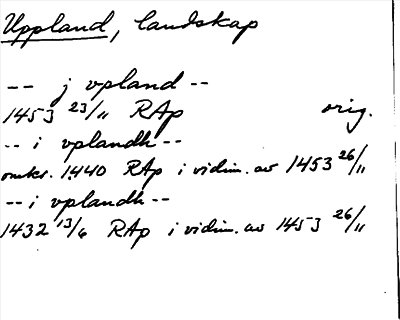 Uppland, landskap
-- j vpland --
1453 23/11 RAp orig.
-- i vplandh --
omkr. 1440 RAp i vidim. av 1453 26/11
-- i vplandh --
1432 13/6 RAp i vidim. av 1453 26/11